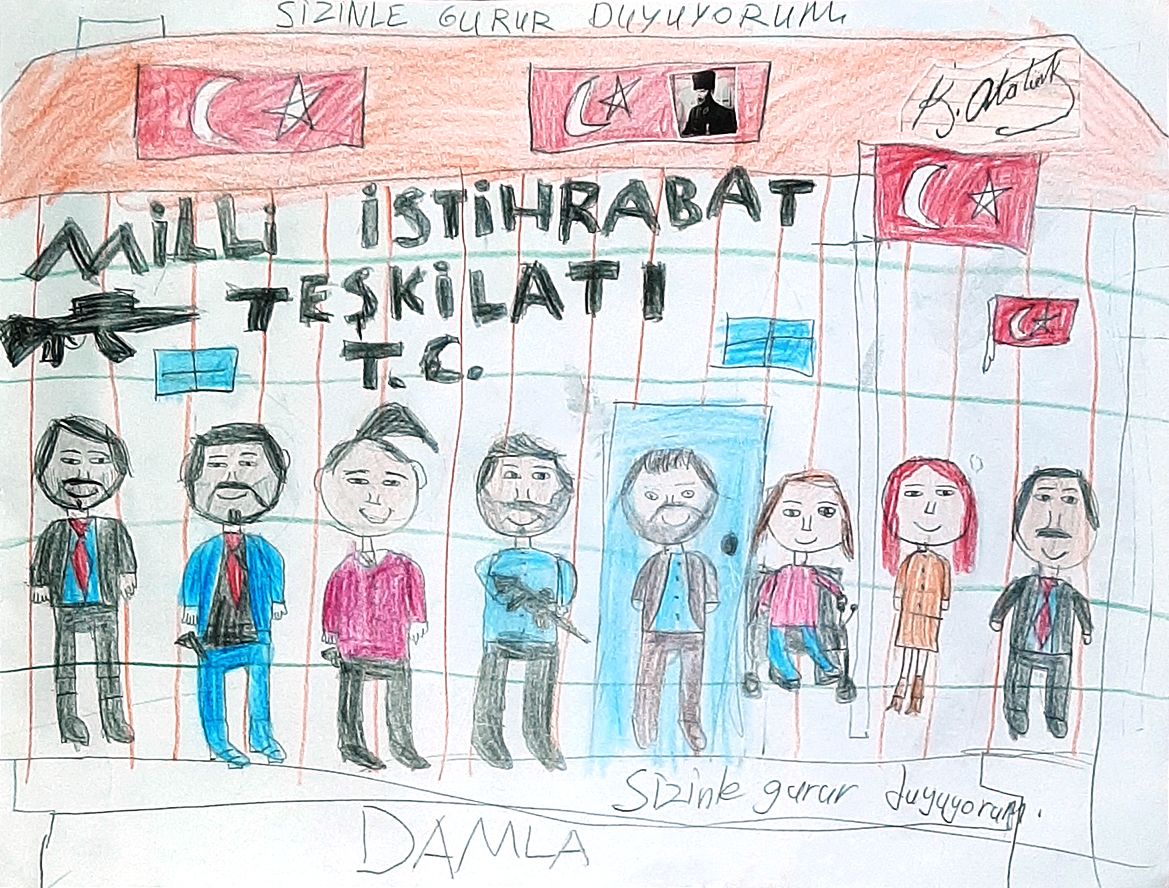 SİZİNLE GURUR DUYUYORUM
K. Atatürk
MİLLİ İSTİHRABAT
TEŞKİLATI
T.C.
Sizinle gurur duyuyorum.
DAMLA